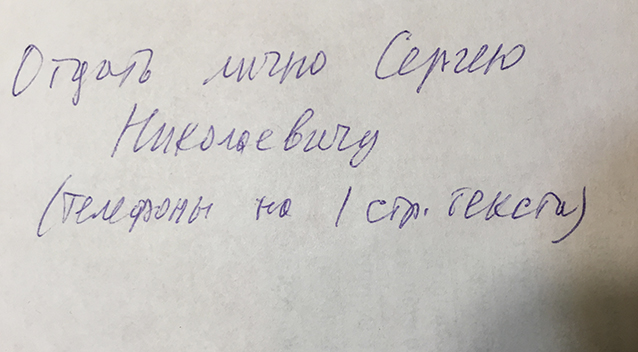 Отдать лично Сергею
Николаевичу
(телефоны на 1 стр. текста)